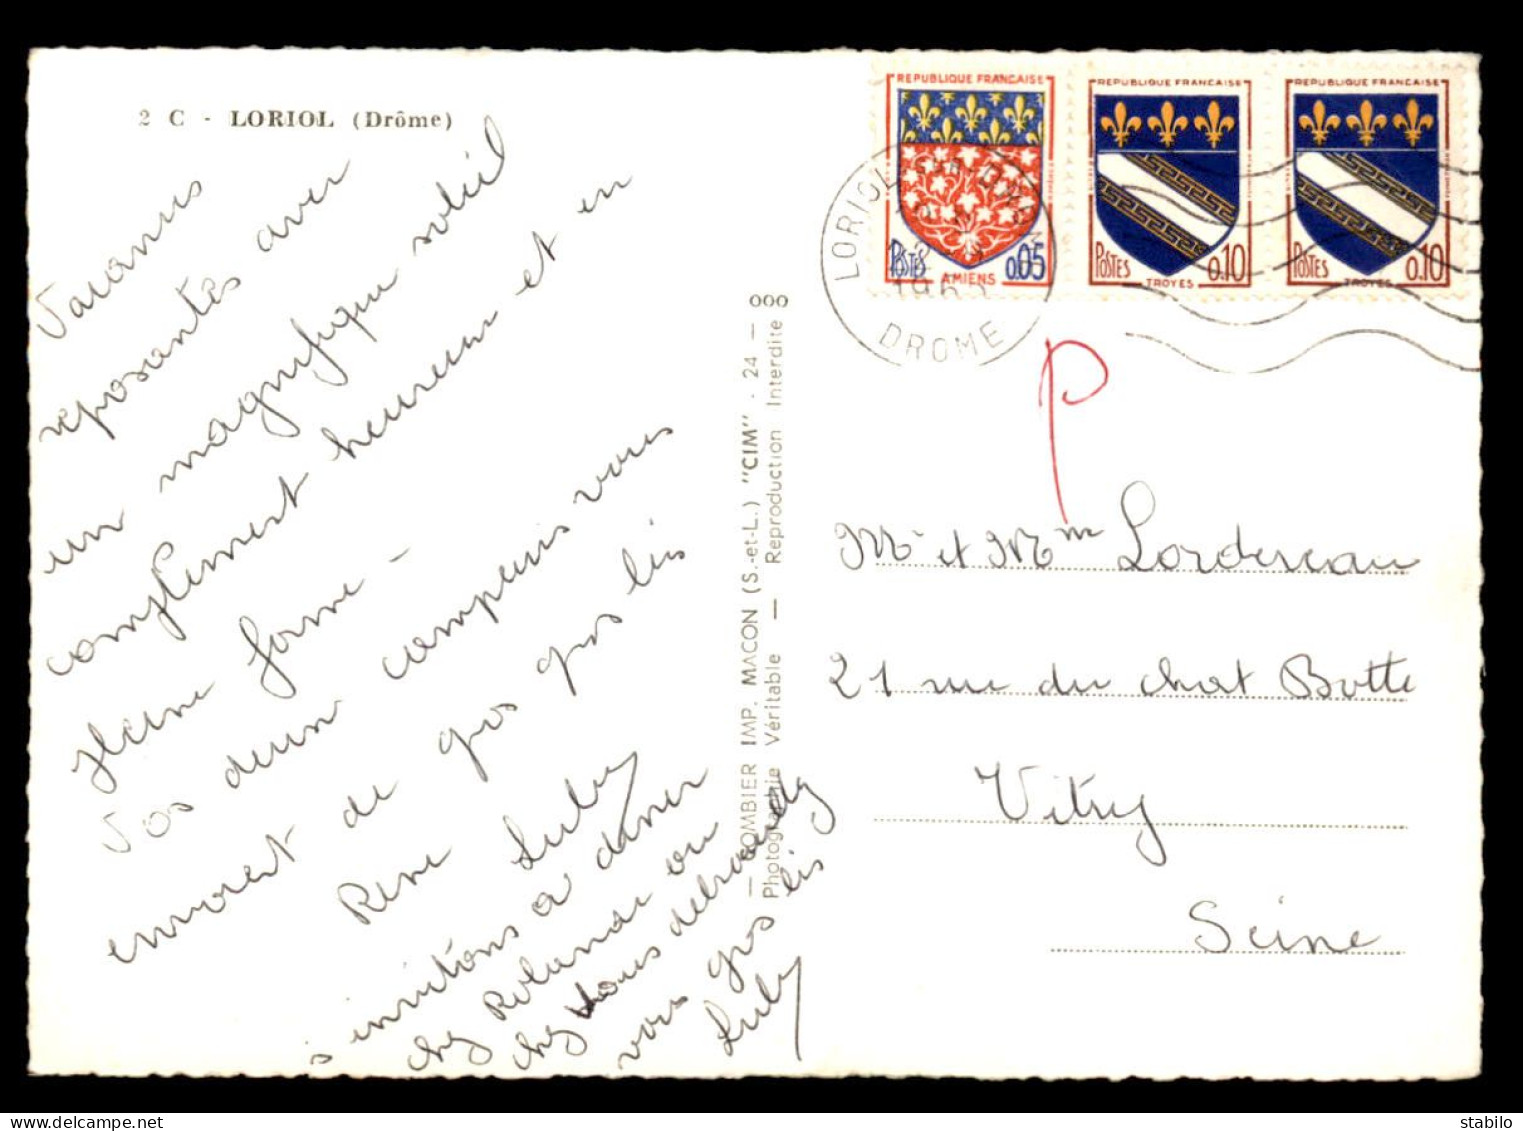 2 C - LORIOL (Drôme)
Vacances
reposantes avec
un magnifique soleil
complement heureux et en
pleine forme -
Vos deux compeurs vous
envoient de gros gros bis
Rene Luly
invitons a diner
chez Rolande ou
chez vous
vous gros bis
Luly
COMBIER IMP. MACON (S.-et-L.) "CIM" - 24 - ooo
Photographie Véritable — Reproduction Interdite
REPUBLIQUE FRANÇAISE
POSTES 0.05
AMIENS
REPUBLIQUE FRANÇAISE
POSTES 0.10
TROYES
REPUBLIQUE FRANÇAISE
POSTES 0.10
TROYES
LORIOL SUR DROME
DROME
P
Mr et Mme Lordereau
21 rue du chat Botte
Vitry
Seine